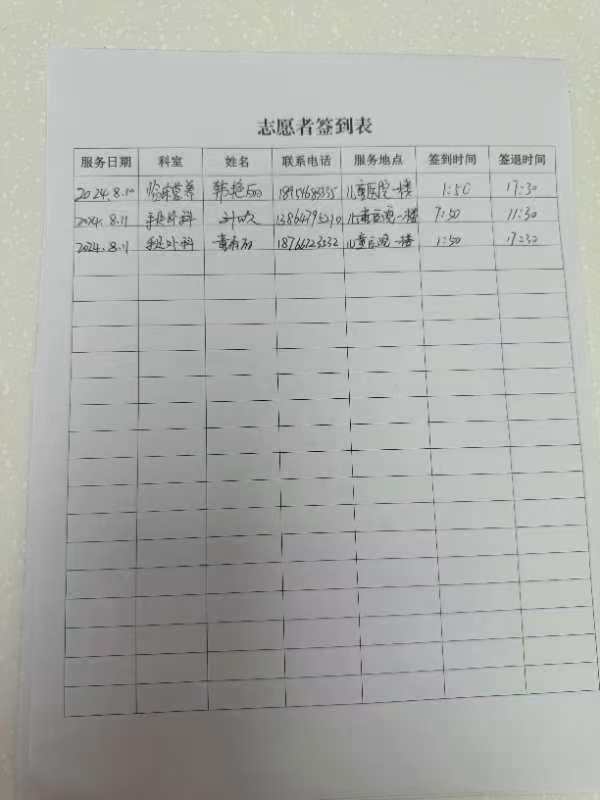 志愿者签到表
服务日期 科室 姓名 联系电话 服务地点 签到时间 签退时间
2024.8.10 临床营养 韩艳 儿童医院一楼 1:50 17:30
2024.8.11 手足外科 儿童医院一楼 7:50 11:30
2024.8.11 手足外科 18766123232 儿童医院一楼 1:50 17:30